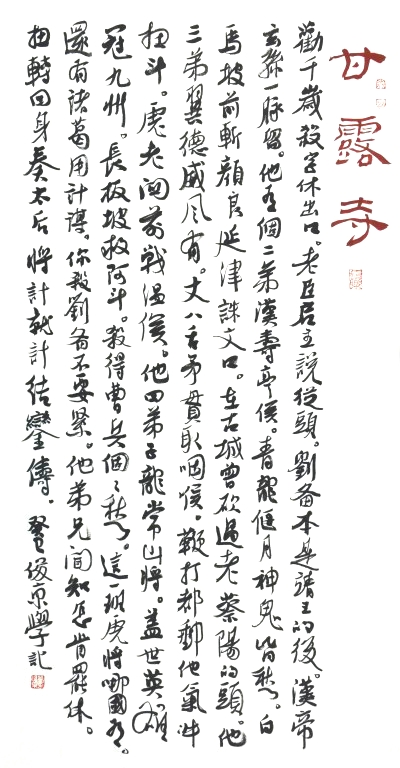 甘露寺
勸千歲殺字休出口。老臣启主説從頭。劉备本是靖王的後。漢帝
玄孫一脉留。他有個二弟漢壽亭侯。青龍偃月神鬼皆愁。白
馬坡前斬顔良延津誅文丑。在古城曾砍過老蔡陽的頭。他
三弟翼德威风有。丈八舌矛貫取咽侯。鞭打都郵他氣冲
扭斗。虎老関前戰温侯。他四弟子龍常山將。蓋世英雄
冠九州。長板坡救阿斗。殺得曹兵個々愁。這一班虎將哪國有。
還有諸葛用計謀。你殺劉备不要緊。他弟兄聞知怎肯罷休。
扭轉回身奏太后將計就計結鸞儔。俊京學記